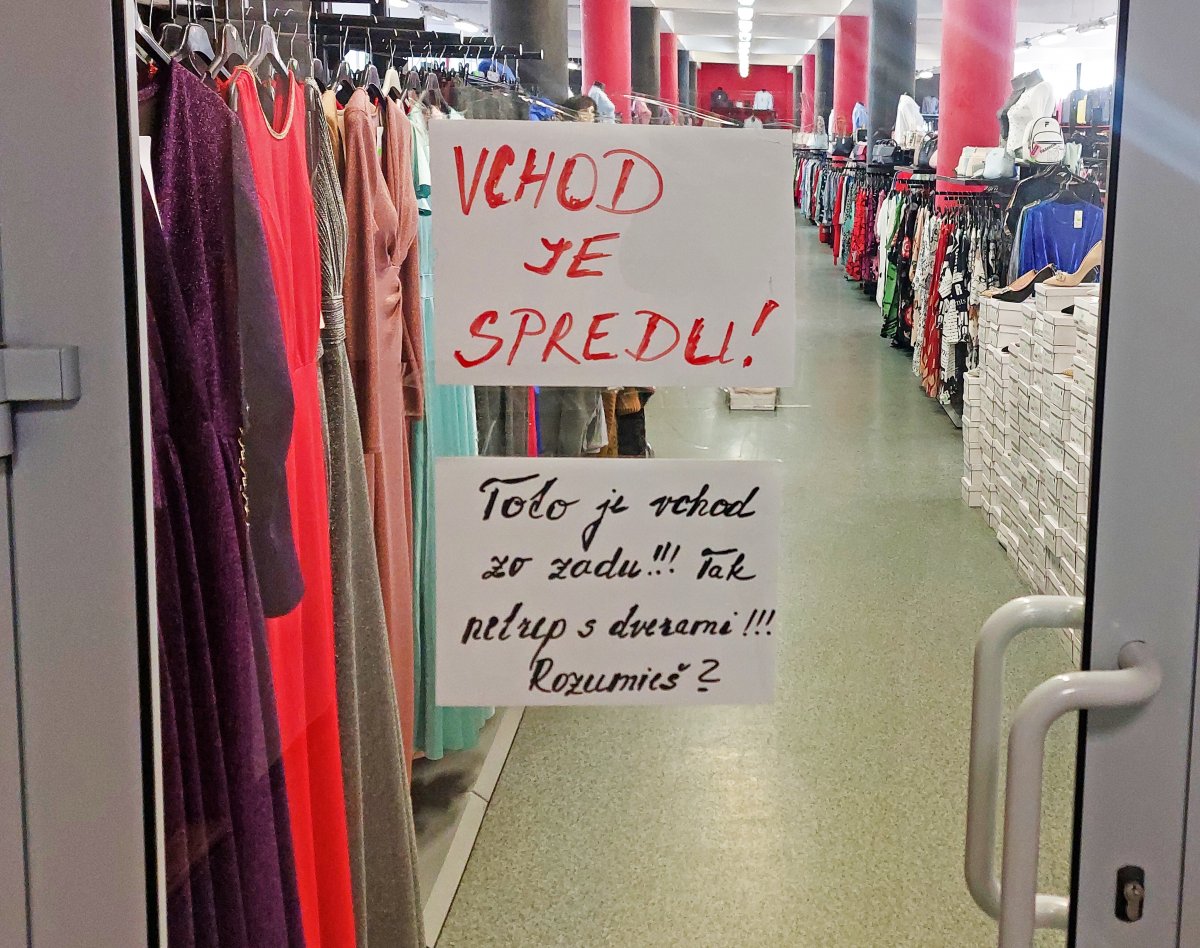 VCHOD
JE
SPREDU!
Toto je vchod
zo zadu!!! Tak
netrep s dverami!!!
Rozumieš?